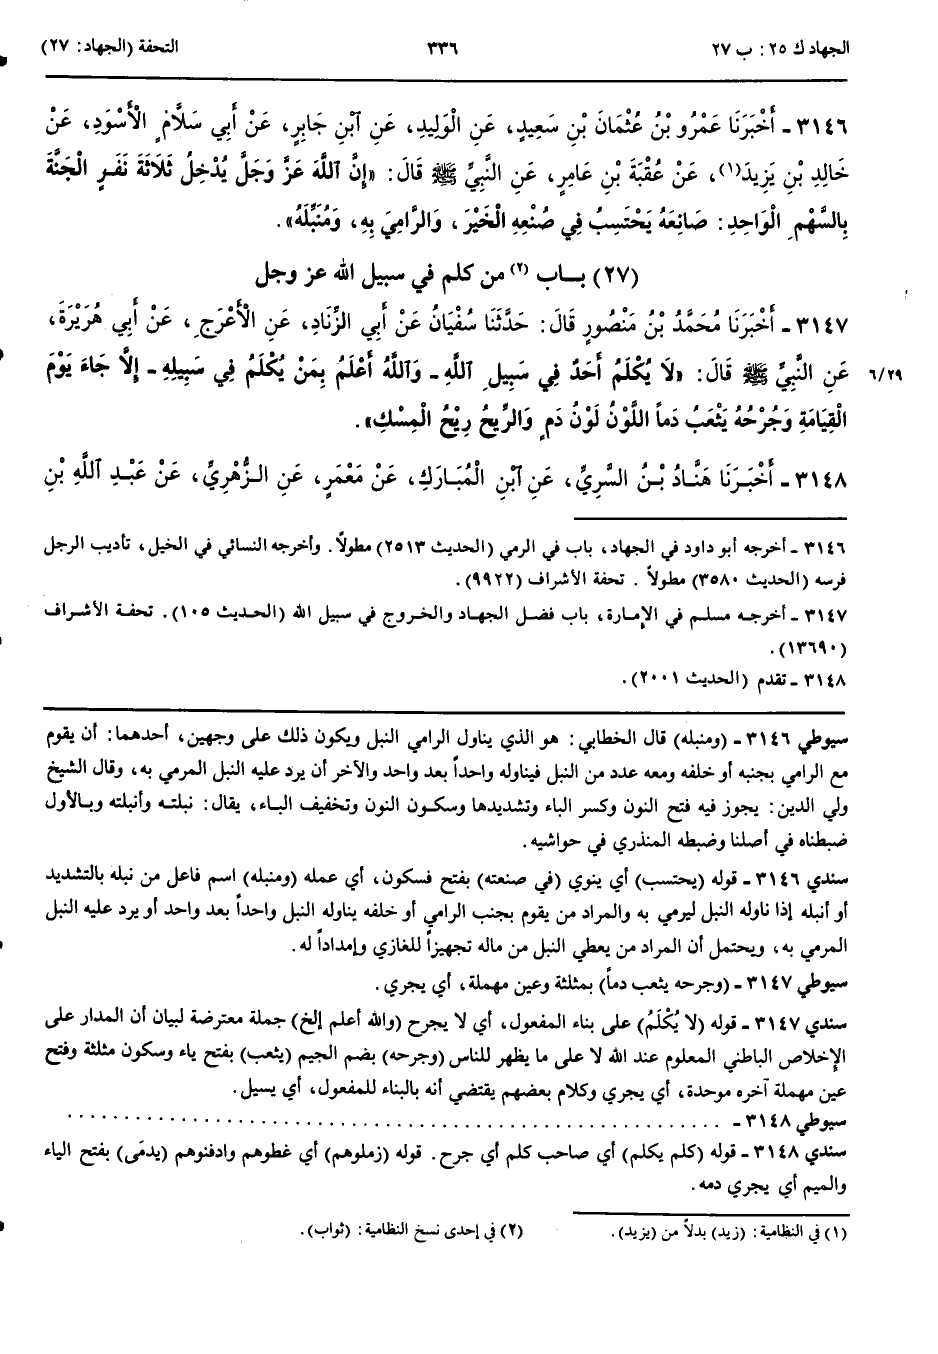 الجهاد ك ٢٥: ب ٢٧ ٣٣٦ التحفة (الجهاد: ٢٧)
٣١٤٦ - أَخْبَرَنَا عَمْرُو بْنُ عُثْمَانَ بْنِ سَعِيدٍ، عَنِ الْوَلِيدِ، عَنِ ٱبْنِ جَابِرٍ، عَنْ أَبِي سَلَّامٍ الْأَسْوَدِ، عَنْ
خَالِدِ بْنِ يَزِيدَ(١)، عَنْ عُقْبَةَ بْنِ عَامِرٍ، عَنِ النَّبِيِّ ﷺ قَالَ: «إِنَّ ٱللَّهَ عَزَّ وَجَلَّ يُدْخِلُ ثَلَاثَةَ نَفَرٍ الْجَنَّةَ
بِالسَّهْمِ الْوَاحِدِ: صَانِعَهُ يَحْتَسِبُ فِي صُنْعِهِ الْخَيْرَ، وَالرَّامِيَ بِهِ، وَمُنَبِّلَهُ».
(٢٧) بــاب (٢) من كلم في سبيل الله عز وجل
٣١٤٧ - أَخْبَرَنَا مُحَمَّدُ بْنُ مَنْصُورٍ قَالَ: حَدَّثَنَا سُفْيَانُ عَنْ أَبِي الزِّنَادِ، عَنِ الْأَعْرَجِ، عَنْ أَبِي هُرَيْرَةَ،
٦/٢٩ عَنِ النَّبِيِّ ﷺ قَالَ: «لَا يُكْلَمُ أَحَدٌ فِي سَبِيلِ ٱللَّهِ - وَٱللَّهُ أَعْلَمُ بِمَنْ يُكْلَمُ فِي سَبِيلِهِ - إِلَّا جَاءَ يَوْمَ
الْقِيَامَةِ وَجُرْحُهُ يَثْعَبُ دَماً اللَّوْنُ لَوْنُ دَمٍ وَالرِّيحُ رِيْحُ الْمِسْكِ».
٣١٤٨ - أَخْبَـرَنَا هَنَّـادُ بْـنُ السَّرِيِّ، عَنِ ٱبْنِ الْمُبَـارَكِ، عَنْ مَعْمَرٍ، عَنِ الـزُّهْرِيِّ، عَنْ عَبْـدِ ٱللَّهِ بْنِ
٣١٤٦ - أخرجه أبو داود في الجهاد، باب في الرمي (الحديث ٢٥١٣) مطولاً. وأخرجه النسائي في الخيل، تأديب الرجل
فرسه (الحديث ٣٥٨٠) مطولاً . تحفة الأشراف (٩٩٢٢).
٣١٤٧ - أخرجـه مسلـم في الإمـارة، باب فضـل الجهـاد والخـروج في سبيل الله (الحـديث ١٠٥). تحفـة الأشـراف
(١٣٦٩٠).
٣١٤٨ - تقدم (الحديث ٢٠٠١).
سيوطي ٣١٤٦ - (ومنبله) قال الخطابي: هو الذي يناول الرامي النبل ويكون ذلك على وجهين، أحدهما: أن يقوم
مع الرامي بجنبه أو خلفه ومعه عدد من النبل فيناوله واحداً بعد واحد والآخر أن يرد عليه النبل المرمي به، وقال الشيخ
ولي الدين: يجوز فيه فتح النون وكسر الباء وتشديدها وسكـون النون وتخفيف البـاء، يقال: نبلتـه وأنبلته وبـالأول
ضبطناه في أصلنا وضبطه المنذري في حواشيه.
سندي ٣١٤٦ - قوله (يحتسب) أي ينوي (في صنعته) بفتح فسكون، أي عمله (ومنبله) اسم فاعل من نبله بالتشديد
أو أنبله إذا ناوله النبل ليرمي به والمراد من يقوم بجنب الرامي أو خلفه يناوله النبل واحداً بعد واحد أو يرد عليه النبل
المرمي به، ويحتمل أن المراد من يعطي النبل من ماله تجهيزاً للغازي وإمداداً له.
سيوطي ٣١٤٧ - (وجرحه يثعب دماً) بمثلثة وعين مهملة، أي يجري.
سندي ٣١٤٧ - قوله (لا يُكْلَمُ) على بناء المفعول، أي لا يجرح (والله أعلم إلخ) جملة معترضة لبيان أن المدار على
الإخلاص الباطني المعلوم عند الله لا على ما يظهر للناس (وجرحه) بضم الجيم (يثعب) بفتح ياء وسكون مثلثة وفتح
عين مهملة آخره موحدة، أي يجري وكلام بعضهم يقتضي أنه بالبناء للمفعول، أي يسيل.
سيوطي ٣١٤٨ - . . . . . . . . . . . . . . . . . . . . . . . . . . . . . . . . . . . . . . . .
سندي ٣١٤٨ - قوله (كلم يكلم) أي صاحب كلم أي جرح. قوله (زملوهم) أي غطوهم وادفنوهم (يدمَى) بفتح الياء
والميم أي يجري دمه.
(١) في النظامية: (زيد) بدلاً من (يزيد). (٢) في إحدى نسخ النظامية: (ثواب).